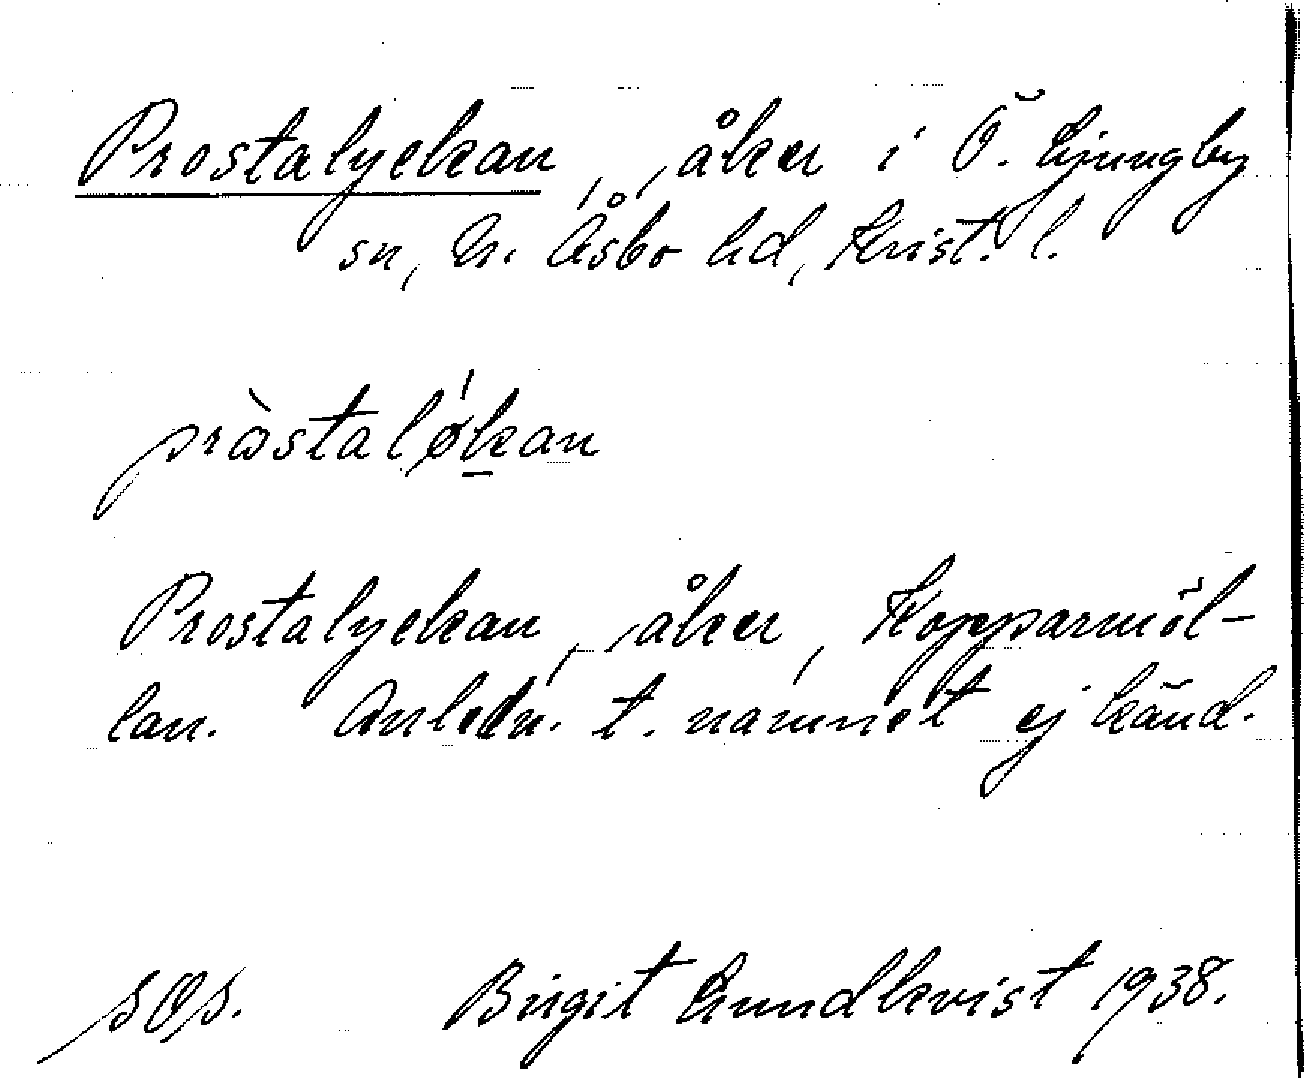 Prostalyckan, åker i Ö. Ljungby
sn, N. Åsbo hd, Krist. l.
pròstaløḵan
Prostalyckan, åker, Kopparmöl-
lan. Anledn. t. namnet ej känd.
Birgit Lundkvist 1938.